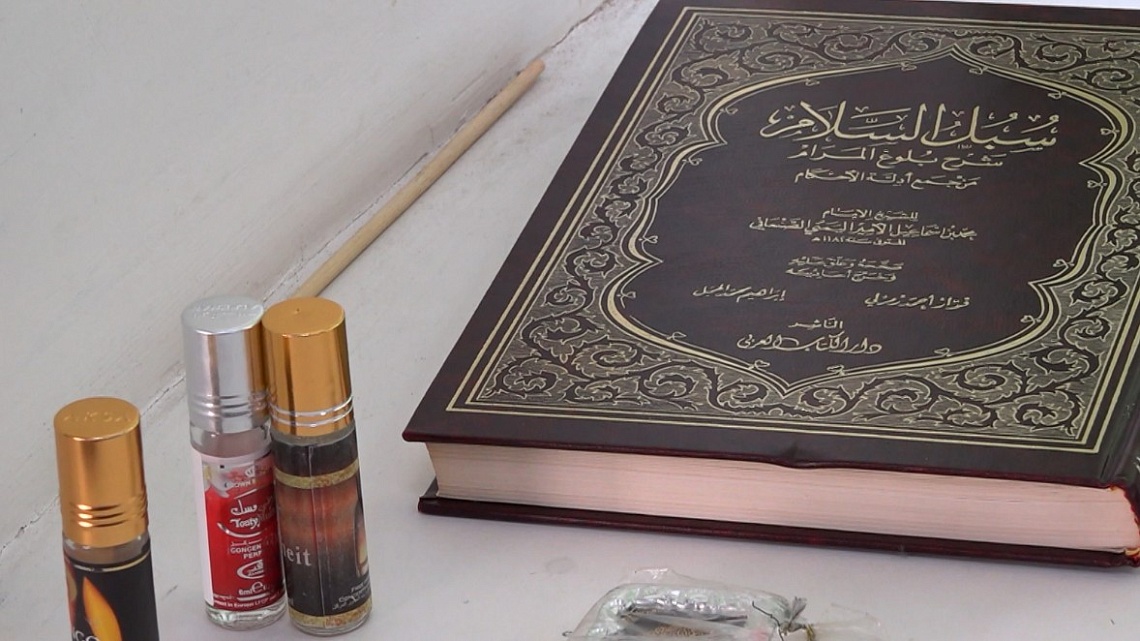 سُبُلُ السَّلَامِ
شرح بلوغ المرام
من جمع أدلة الأحكام
للشيخ الإمام
محمد بن اسماعيل الأمير اليمني الصنعاني
المتوفى سنة ١١٨٢ هـ
صححه وعلق عليه
وخرج أحاديثه
فواز أحمد زمرلي
إبراهيم محمد الجمل
الناشر
دار الكتاب العربي
BROWN
مسك
Tooty
CONCEN
PERF
6ml
eit